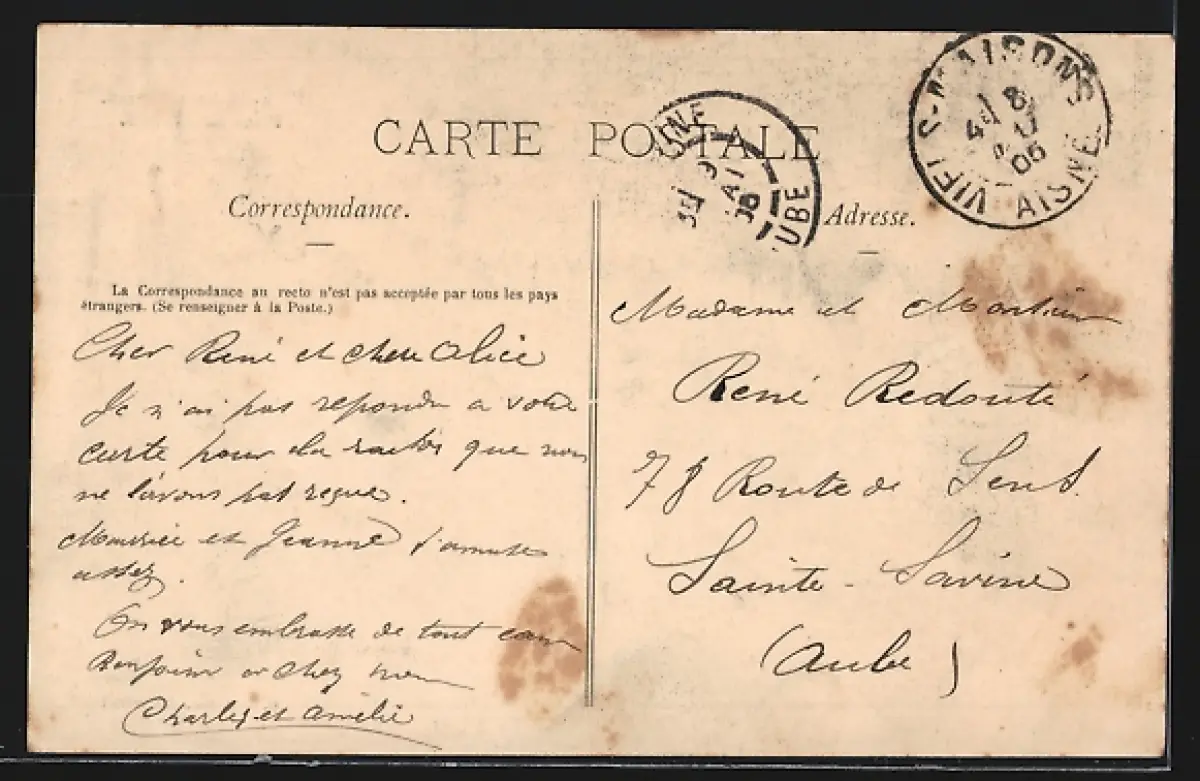 CARTE POSTALE
Correspondance.
La Correspondance au recto n'est pas acceptée par tous les pays
étrangers. (Se renseigner à la Poste.)
Cher René et chere Alice
Je n'ai pas repondu a votre
carte pour la que nous
ne l'avons pas reçue.
Maurice et Jeanne s'amuse
assez.
On vous embrasse de tout cœur
Bonjour chez
Charles et Amélie
Adresse.
Madame et Monsieur
René Redouté
78 Route de Sens
Sainte-Savine
(Aube)
VIELS-MAISONS
8
AISNE
INE
9
AI
UBE